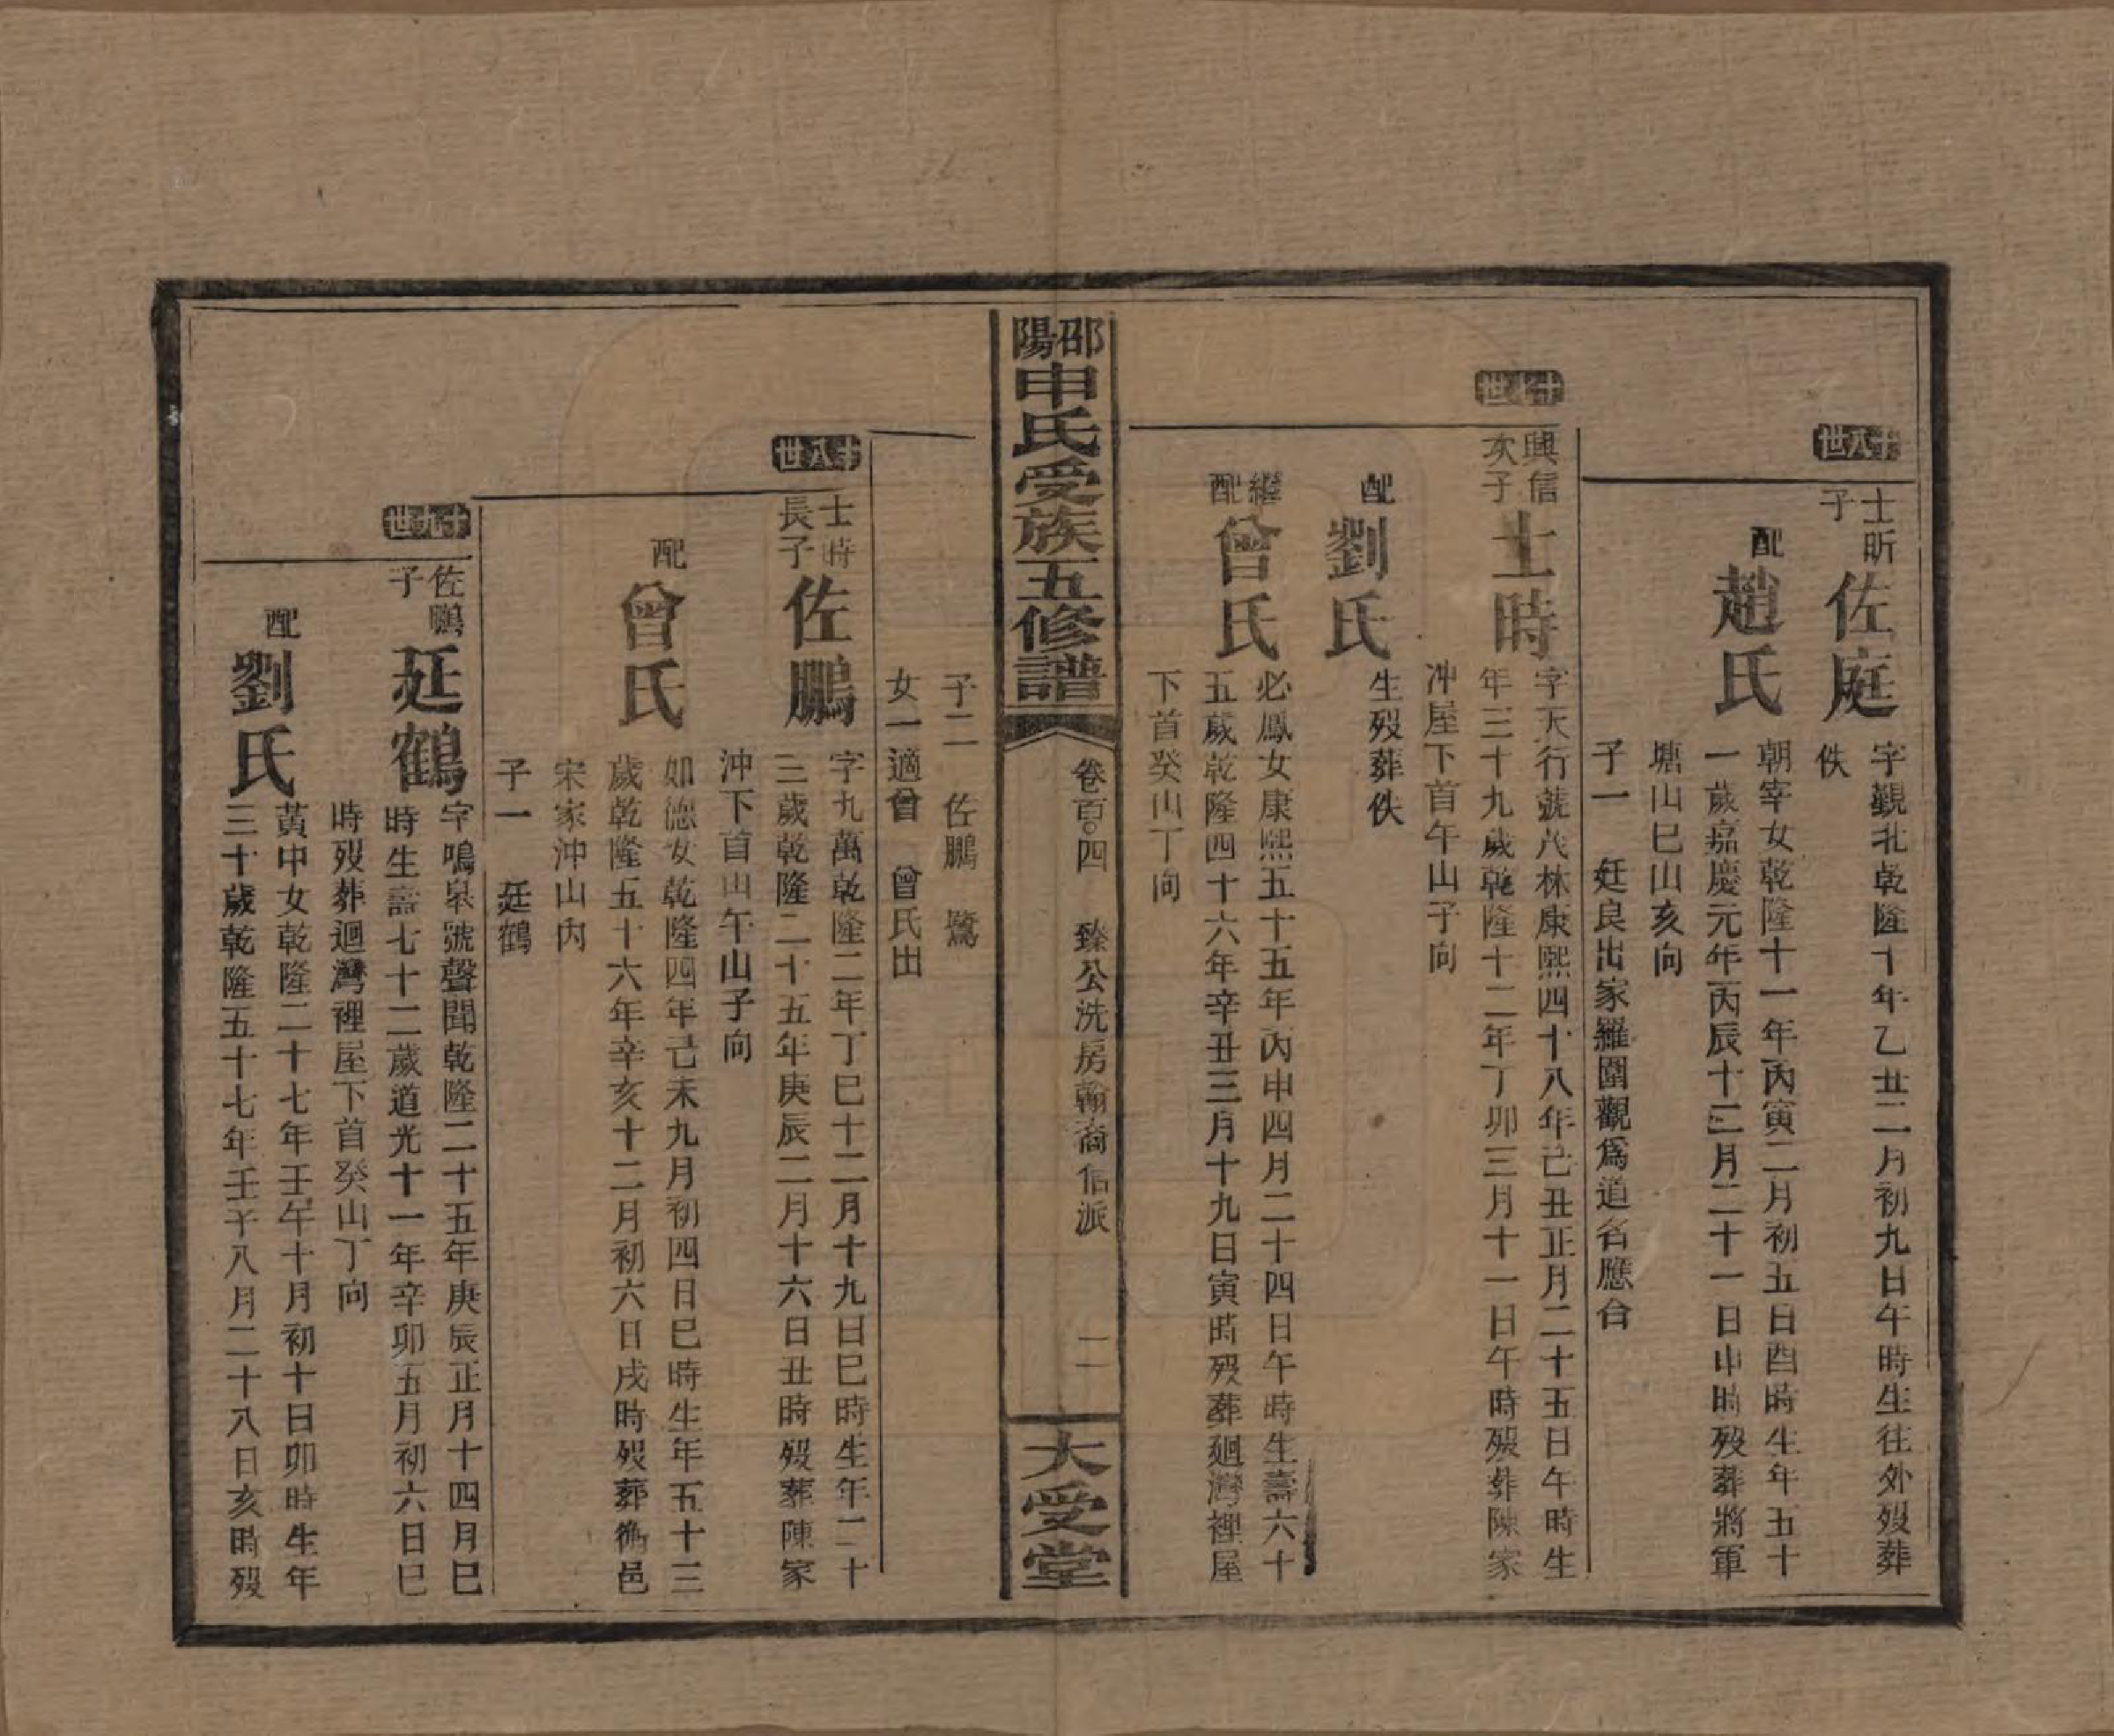 十八世
士昕
子
佐庭
字覲北乾隆十年乙丑二月初九日午時生往外歿葬
佚
配
趙氏
朝宰女乾隆十一年丙寅二月初五日酉時生年五十
一歲嘉慶元年丙辰十二月二十一日申時歿葬將軍
塘山巳山亥向
子一　廷良出家羅圍觀爲道名應台
十七世
興信
次子
士時
字天行號茂林康熙四十八年己丑正月二十五日午時生
年三十九歲乾隆十二年丁卯三月十一日午時歿葬陳家
冲屋下首午山子向
配
劉氏
生歿葬佚
繼
配
曾氏
必鳳女康熙五十五年丙申四月二十四日午時生壽六十
五歲乾隆四十六年辛丑三月十九日寅時歿葬廻灣裡屋
下首癸山丁向
邵陽申氏受族五修譜
卷百〇四　臻公洗房翰裔信派
二
大受堂
子二　佐鵬　鷟
女一適曾　曾氏出
十八世
士時
長子
佐鵬
字九萬乾隆二年丁巳十二月十九日巳時生年二十
三歲乾隆二十五年庚辰二月十六日丑時歿葬陳家
冲下首山午山子向
配
曾氏
如德女乾隆四年己未九月初四日巳時生年五十三
歲乾隆五十六年辛亥十二月初六日戌時歿葬衡邑
宋家沖山內
子一　廷鶴
十九世
佐鵬
子
廷鶴
字鳴皋號聲聞乾隆二十五年庚辰正月十四月巳
時生壽七十二歲道光十一年辛卯五月初六日巳
時歿葬迴灣裡屋下首癸山丁向
配
劉氏
黃中女乾隆二十七年壬午十月初十日卯時生年
三十歲乾隆五十七年壬子八月二十八日亥時歿